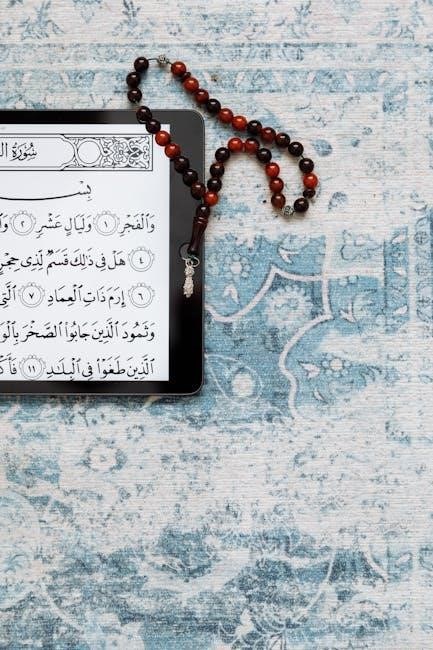 سُورَةُ ال
بِسْ
وَالْفَجْرِ ١ وَلَيَالٍ عَشْرٍ ٢ وَال
٤ هَلْ فِي ذَٰلِكَ قَسَمٌ لِّذِي حِجْرٍ
٦ إِرَمَ ذَاتِ الْعِمَادِ ٧ الَّتِي
وَثَمُودَ الَّذِينَ جَابُوا الصَّخْرَ بِالْوَا
الَّذِينَ طَغَوْا فِي الْبِلَٰدِ ١١ فَأَكْ